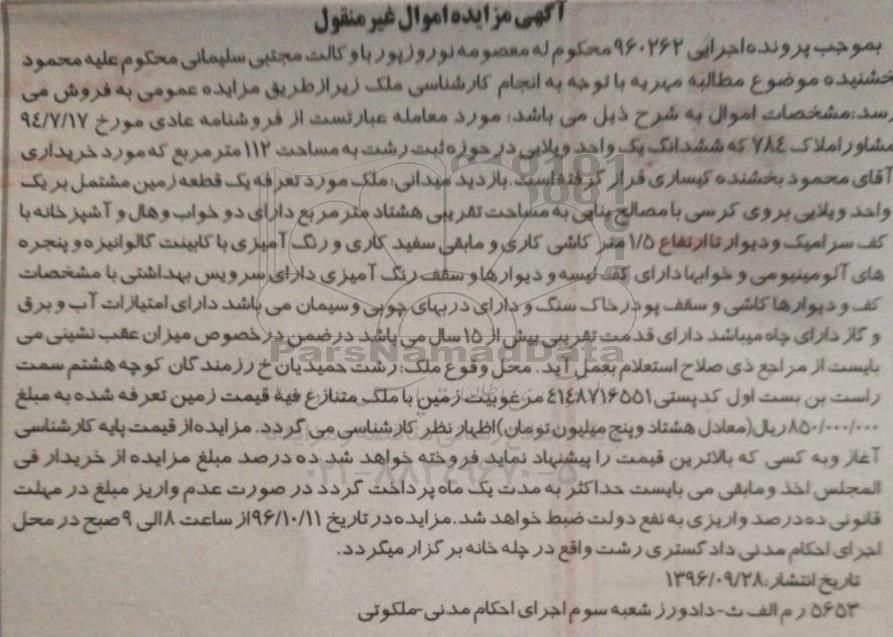 آگهی مزایده اموال غیر منقول
بموجب پرونده اجرایی ۹۶۰۲۶۲ محکوم له معصومه نوروزپور با وکالت مجتبی سلیمانی محکوم علیه محمود
بخشنده موضوع مطالبه مهریه با توجه به انجام کارشناسی ملک زیر از طریق مزایده عمومی به فروش می
رسد: مشخصات اموال به شرح ذیل می باشد: مورد معامله عبارتست از فروشنامه عادی مورخ ۹۴/۷/۱۷
مشاور املاک ۷۸٤ که ششدانگ یک واحد ویلایی در حوزه ثبت رشت به مساحت ۱۱۲ متر مربع که مورد خریداری
آقای محمود بخشنده کیساری قرار گرفته است. بازدید میدانی: ملک مورد تعرفه یک قطعه زمین مشتمل بر یک
واحد ویلایی بروی کرسی با مصالح بنایی به مساحت تقریبی هشتاد متر مربع دارای دو خواب وهال و آشپزخانه با
کف سرامیک و دیوار تا ارتفاع ۱/۵ متر کاشی کاری و مابقی سفید کاری و رنگ آمیزی با کابینت گالوانیزه و پنجره
های آلومینیومی و خوابها دارای کف لیسه و دیوارها و سقف رنگ آمیزی دارای سرویس بهداشتی با مشخصات
کف و دیوارها کاشی و سقف پودر خاک سنگ و دارای دربهای چوبی وسیمان می باشد دارای امتیازات آب و برق
و گاز دارای چاه میباشد دارای قدمت تقریبی بیش از ۱۵ سال می باشد در ضمن در خصوص میزان عقب نشینی می
بایست از مراجع ذی صلاح استعلام بعمل آید. محل وقوع ملک: رشت حمیدیان خ رزمندگان کوچه هشتم سمت
راست بن بست اول کدپستی ٤۱٤۸۷۱۶۵۵۱ مرغوبیت زمین با ملک متنازع فیه قیمت زمین تعرفه شده به مبلغ
۸۵۰/۰۰۰/۰۰۰ ریال (معادل هشتاد و پنج میلیون تومان) اظهار نظر کارشناسی می گردد. مزایده از قیمت پایه کارشناسی
آغاز وبه کسی که بالاترین قیمت را پیشنهاد نماید فروخته خواهد شد ده درصد مبلغ مزایده از خریدار فی
المجلس اخذ و مابقی می بایست حداکثر به مدت یک ماه پرداخت گردد در صورت عدم واریز مبلغ در مهلت
قانونی ده درصد واریزی به نفع دولت ضبط خواهد شد. مزایده در تاریخ ۹۶/۱۰/۱۱ از ساعت ۸ الی ۹ صبح در محل
اجرای احکام مدنی دادگستری رشت واقع در چله خانه برگزار میگردد.
تاریخ انتشار: ۱۳۹۶/۰۹/۲۸
۵۶۵۳ ر م الف ث-دادورز شعبه سوم اجرای احکام مدنی-ملکوتی
ParsNamadData
۰۲۱-۸۸۳٤۹۶۷۰-۵